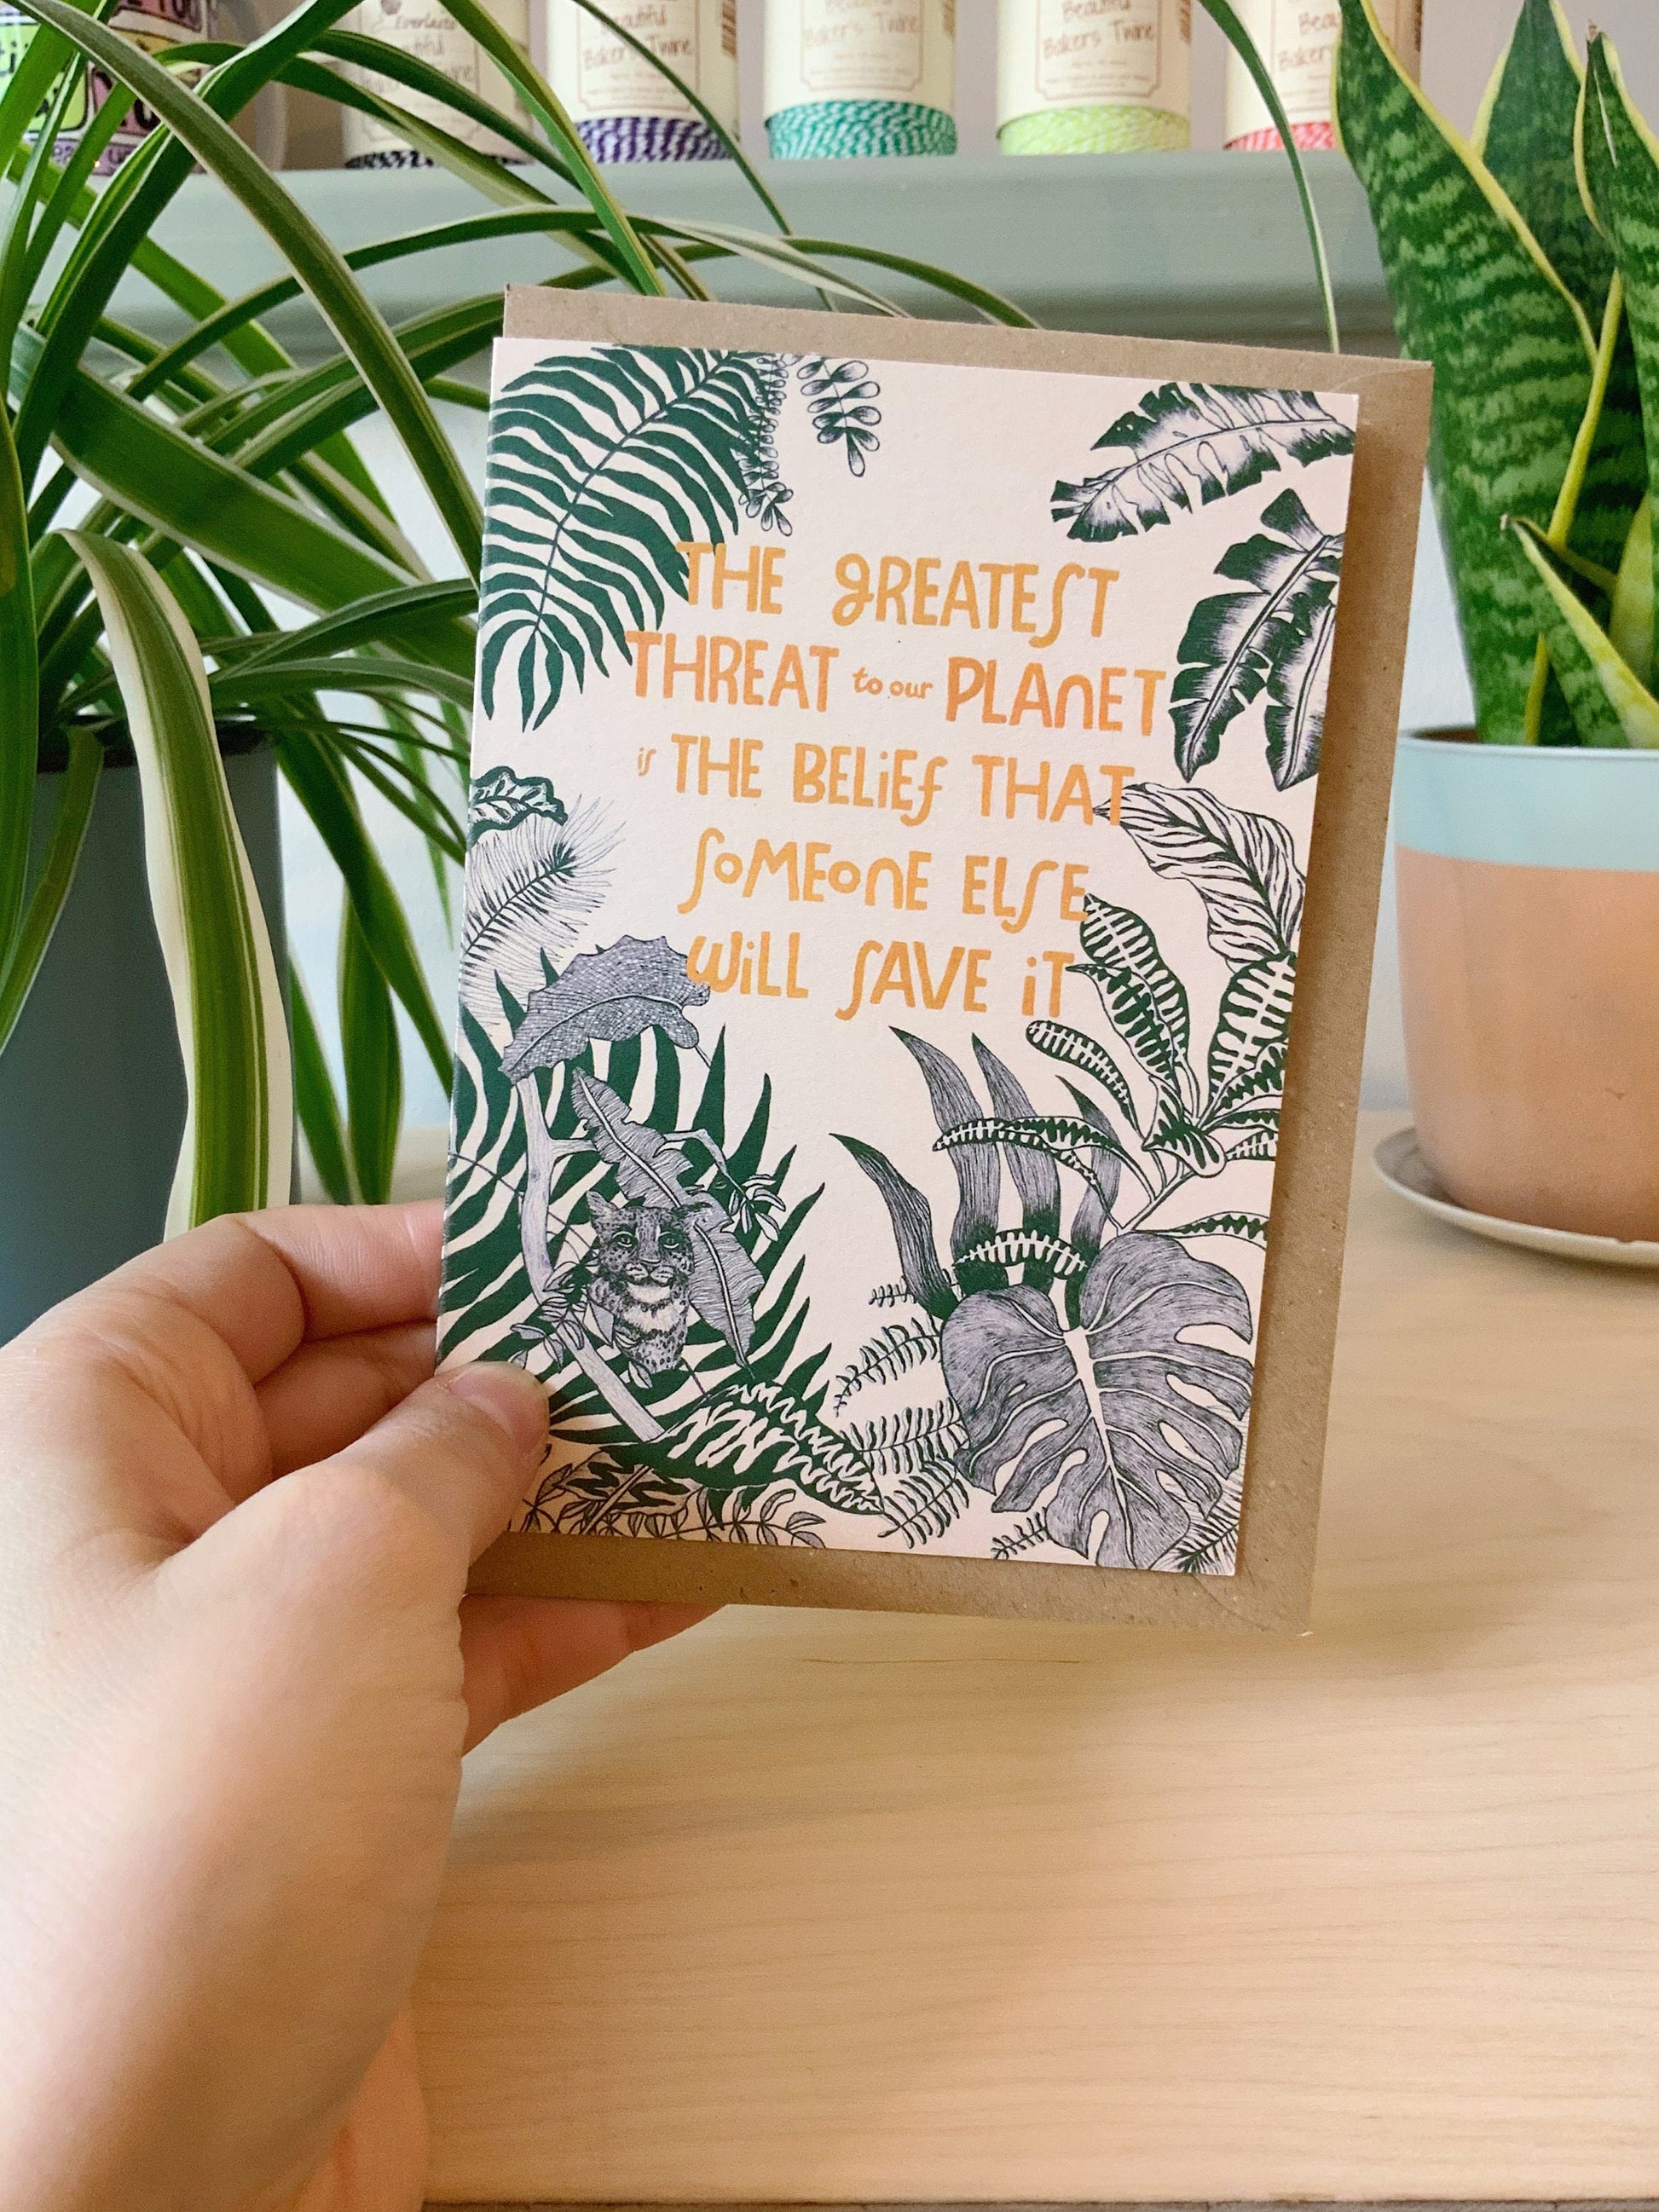 Everlasto
Beautiful
Bakers Twine
Beautiful
Bakers Twine
Beautiful
Bakers Twine
THE gREATEST
THREAT to our PLAnET
is THE BELiEf THAT
SoMEonE ELSE
WiLL SAVE iT